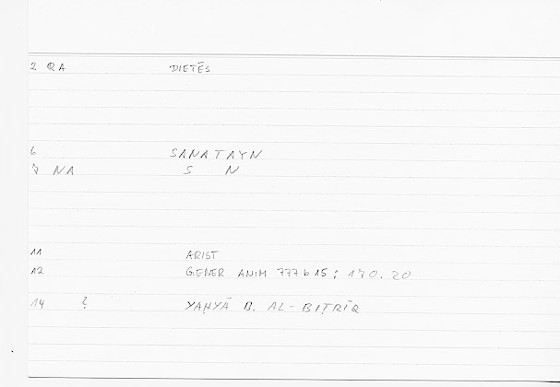 2 QA DIETĒS
6 SANATAYN
7 NA S N
11 ARIST
12 GENER ANIM 777 b 15 ; 170.20
14 ? YAḤYĀ B. AL-BIṬRĪQ